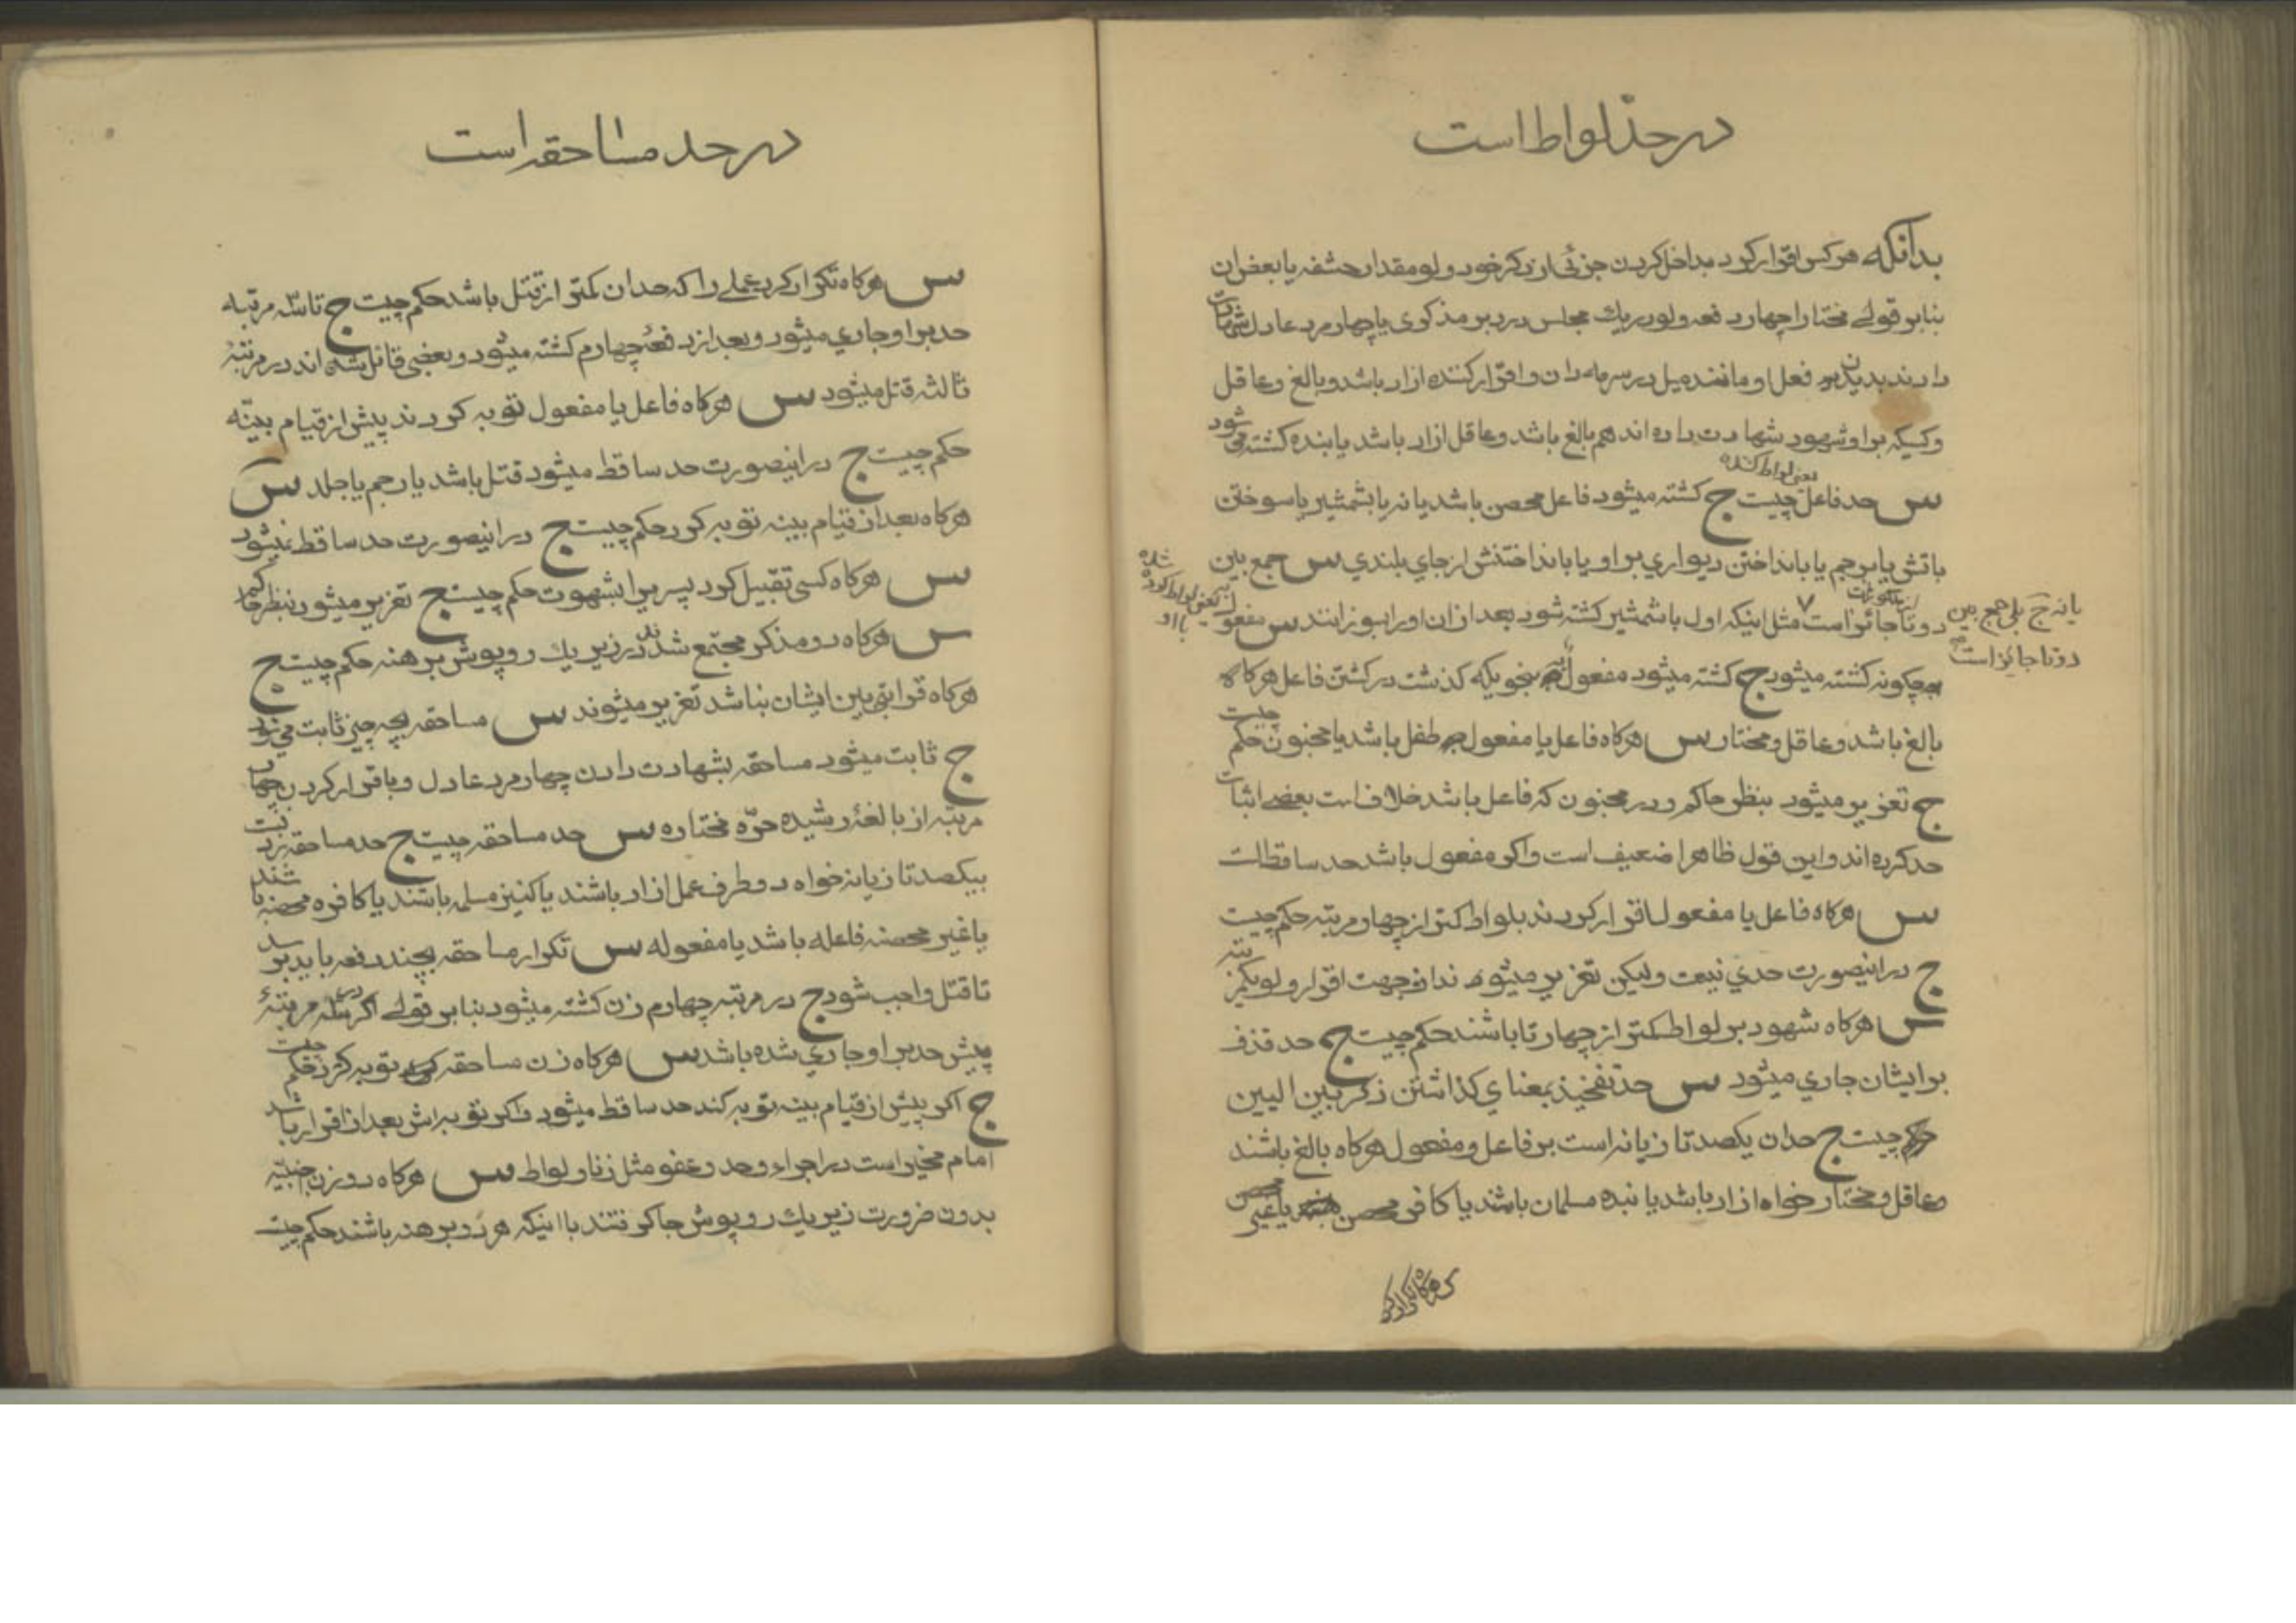 در حدّ لواط است
بدانکه هر کس اقرار کرد بداخل کردن جزئی از ذکر خود ولو مقدار حشفه یا بعض ان
بنابر قولے مختارا چهار دفعه ولو در یك مجلس در دبر مذکری یا چهار مرد عادل شهادت
دادند بدیدن فعل او مانند میل در سرمه دان و اقرار کننده ازاد باشد و بالغ و عاقل
وکسیکه بر او شهود شهادت داده اند هم بالغ باشد و عاقل ازاد باشد یا بنده کشته می شود
یعنی لواط کننده
س حد فاعل چیست ج کشته میشود فاعل محصن باشد یا نه یا بشمشیر یا سوختن
باتش یا برجم یا بانداختن دیواری بر او یا بانداختنش از جای بلندی س جمع بین
یا نه ج بلی جمع بین دوتا جایز است
دو تا جائز است مثل اینکه اول با شمشیر کشته شود بعد از ان او را بسوزانند س مفعول
یعنی لواط کرده شده با او
چکونه کشته میشود ج کشته میشود مفعول بنحویکه کذشت در کشتن فاعل هرکاه
بالغ باشد و عاقل و مختار س هرکاه فاعل یا مفعول طفل باشد یا مجنون حکم چیست
ج تعزیر میشود بنظر حاکم و در مجنون که فاعل باشد خلاف است بعضے اثبات
حد کرده اند و این قول ظاهرا ضعیف است و اکر مفعول باشد حد ساقط است
س هرکاه فاعل یا مفعول اقرار کردند بلواط کمتر از چهار مرتبه حکم چیست
ج در اینصورت حدی نیست ولیکن تعزیر میشوند از جهت اقرار ولو یکمرتبه
س هرکاه شهود بر لواط کمتر از چهار تا باشند حکم چیست ج حد قذف
بر ایشان جاری میشود س حد تفخیذ بمعنای کذاشتن ذکر بین الیین
چیست ج حد ان یکصد تازیانه است بر فاعل و مفعول هرکاه بالغ باشند
و عاقل و مختار خواه ازاد باشد یا بنده مسلمان باشند یا کافر محصن یا غیر محصن
س هرکاه تکرار کرد
در حد مساحقه است
س هرکاه تکرار کرد عملے را که حد ان کمتر از قتل باشد حکم چیست ج تا سه مرتبه
حد بر او جاری میشود و بعد از دفعهٔ چهارم کشته میشود و بعضی قائل شده اند در مرتبهٔ
ثالثه قتل میشود س هرکاه فاعل یا مفعول توبه کردند پیش از قیام بیّنه
حکم چیست ج در اینصورت حد ساقط میشود قتل باشد یا رجم یا جلد س
هرکاه بعد از قیام بینه توبه کرد حکم چیست ج در اینصورت حد ساقط نمیشود
س هرکاه کسی تقبیل کرد پسریرا بشهوت حکم چیست ج تعزیر میشود بنظر حاکم
س هرکاه دو مذکر مجتمع شدند در زیر یك روپوش برهنه حکم چیست ج
هرکاه قرابتی بین ایشان نباشد تعزیر میشوند س مساحقه بچه چیز ثابت می شود
ج ثابت میشود مساحقه بشهادت دادن چهار مرد عادل و باقرار کردن چهار
مرتبه از بالغهٔ رشیده حرّه مختاره س حد مساحقه چیست ج حد مساحقه زدنست
بیکصد تازیانه خواه دو طرف عمل ازاد باشند یا کنیز مسلمه باشند یا کافره محصنه باشند
یا غیر محصنه فاعله باشد یا مفعوله س تکرار مساحقه بچند دفعه باید برسد
تا قتل واجب شود ج در مرتبه چهارم زن کشته میشود بنابر قولے اکر در سه مرتبهٔ
پیش حد بر او جاری شده باشد س هرکاه زن مساحقه توبه کرد حکم چیست
ج اکر پیش از قیام بینه توبه کند حد ساقط میشود و اکر توبه اش بعد از اقرار باشد
امام مخیر است در اجراء حد و عفو مثل زنا و لواط س هرکاه دو زن جنبیّه
بدون ضرورت زیر یك روپوش جا کرفتند با اینکه هر دو برهنه باشند حکم چیست